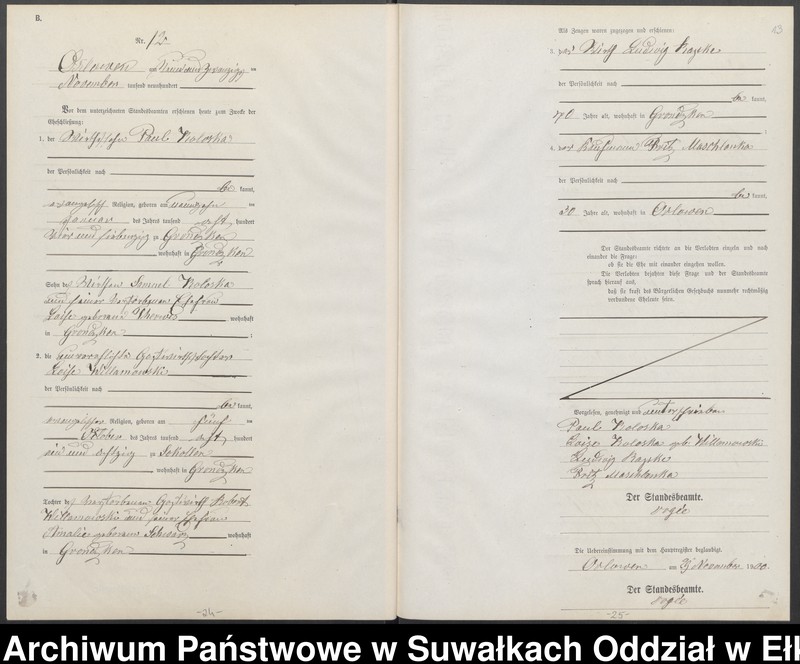 B.
Nr. 13
Orlowen am neunundzwanzigsten
November tausend neunhundert
Vor dem unterzeichneten Standesbeamten erschienen heute zum Zwecke der
Eheschließung:
1. der Wirthssohn Paul Koloska
der Persönlichkeit nach
be kannt,
evangelischer Religion, geboren am neunzehnten
Januar des Jahres tausend acht hundert
vier und siebenzig zu Grondzken
, wohnhaft in Grondzken
Sohn des Wirthen Samuel Koloska
und seiner verstorbenen Ehefrau
Loise geborene wohnhaft
in Grondzken ;
2. die unverehelichte Gastwirthstochter
Loise Willamowski
der Persönlichkeit nach
be kannt,
evangelischer Religion, geboren am fünften
Oktober des Jahres tausend acht hundert
ein und achtzig zu Sokollen
, wohnhaft in Grondzken
Tochter des verstorbenen Gastwirth Robert
Willamowski und seiner Ehefrau
Amalie geborenen wohnhaft
in Grondzken
-24-
13
Als Zeugen waren zugezogen und erschienen:
3. der Wirth Ludwig
der Persönlichkeit nach
be kannt,
70 Jahre alt, wohnhaft in Grondzken
;
4. der Kaufmann Fritz Maschlanka
der Persönlichkeit nach
be kannt,
30 Jahre alt, wohnhaft in Orlowen
Der Standesbeamte richtete an die Verlobten einzeln und nach
einander die Frage:
ob sie die Ehe mit einander eingehen wollen.
Die Verlobten bejahten diese Frage und der Standesbeamte
sprach hierauf aus,
daß sie kraft des Bürgerlichen Gesetzbuchs nunmehr rechtmäßig
verbundene Eheleute seien.
Vorgelesen, genehmigt und unterschrieben
Paul Koloska
Loise Koloska geb. Willamowski
Ludwig
Fritz Maschlanka
Der Standesbeamte.
Die Uebereinstimmung mit dem Hauptregister beglaubigt.
Orlowen am November 1900.
Der Standesbeamte.
-25-
Archiwum Państwowe w Suwałkach Oddział w Eł